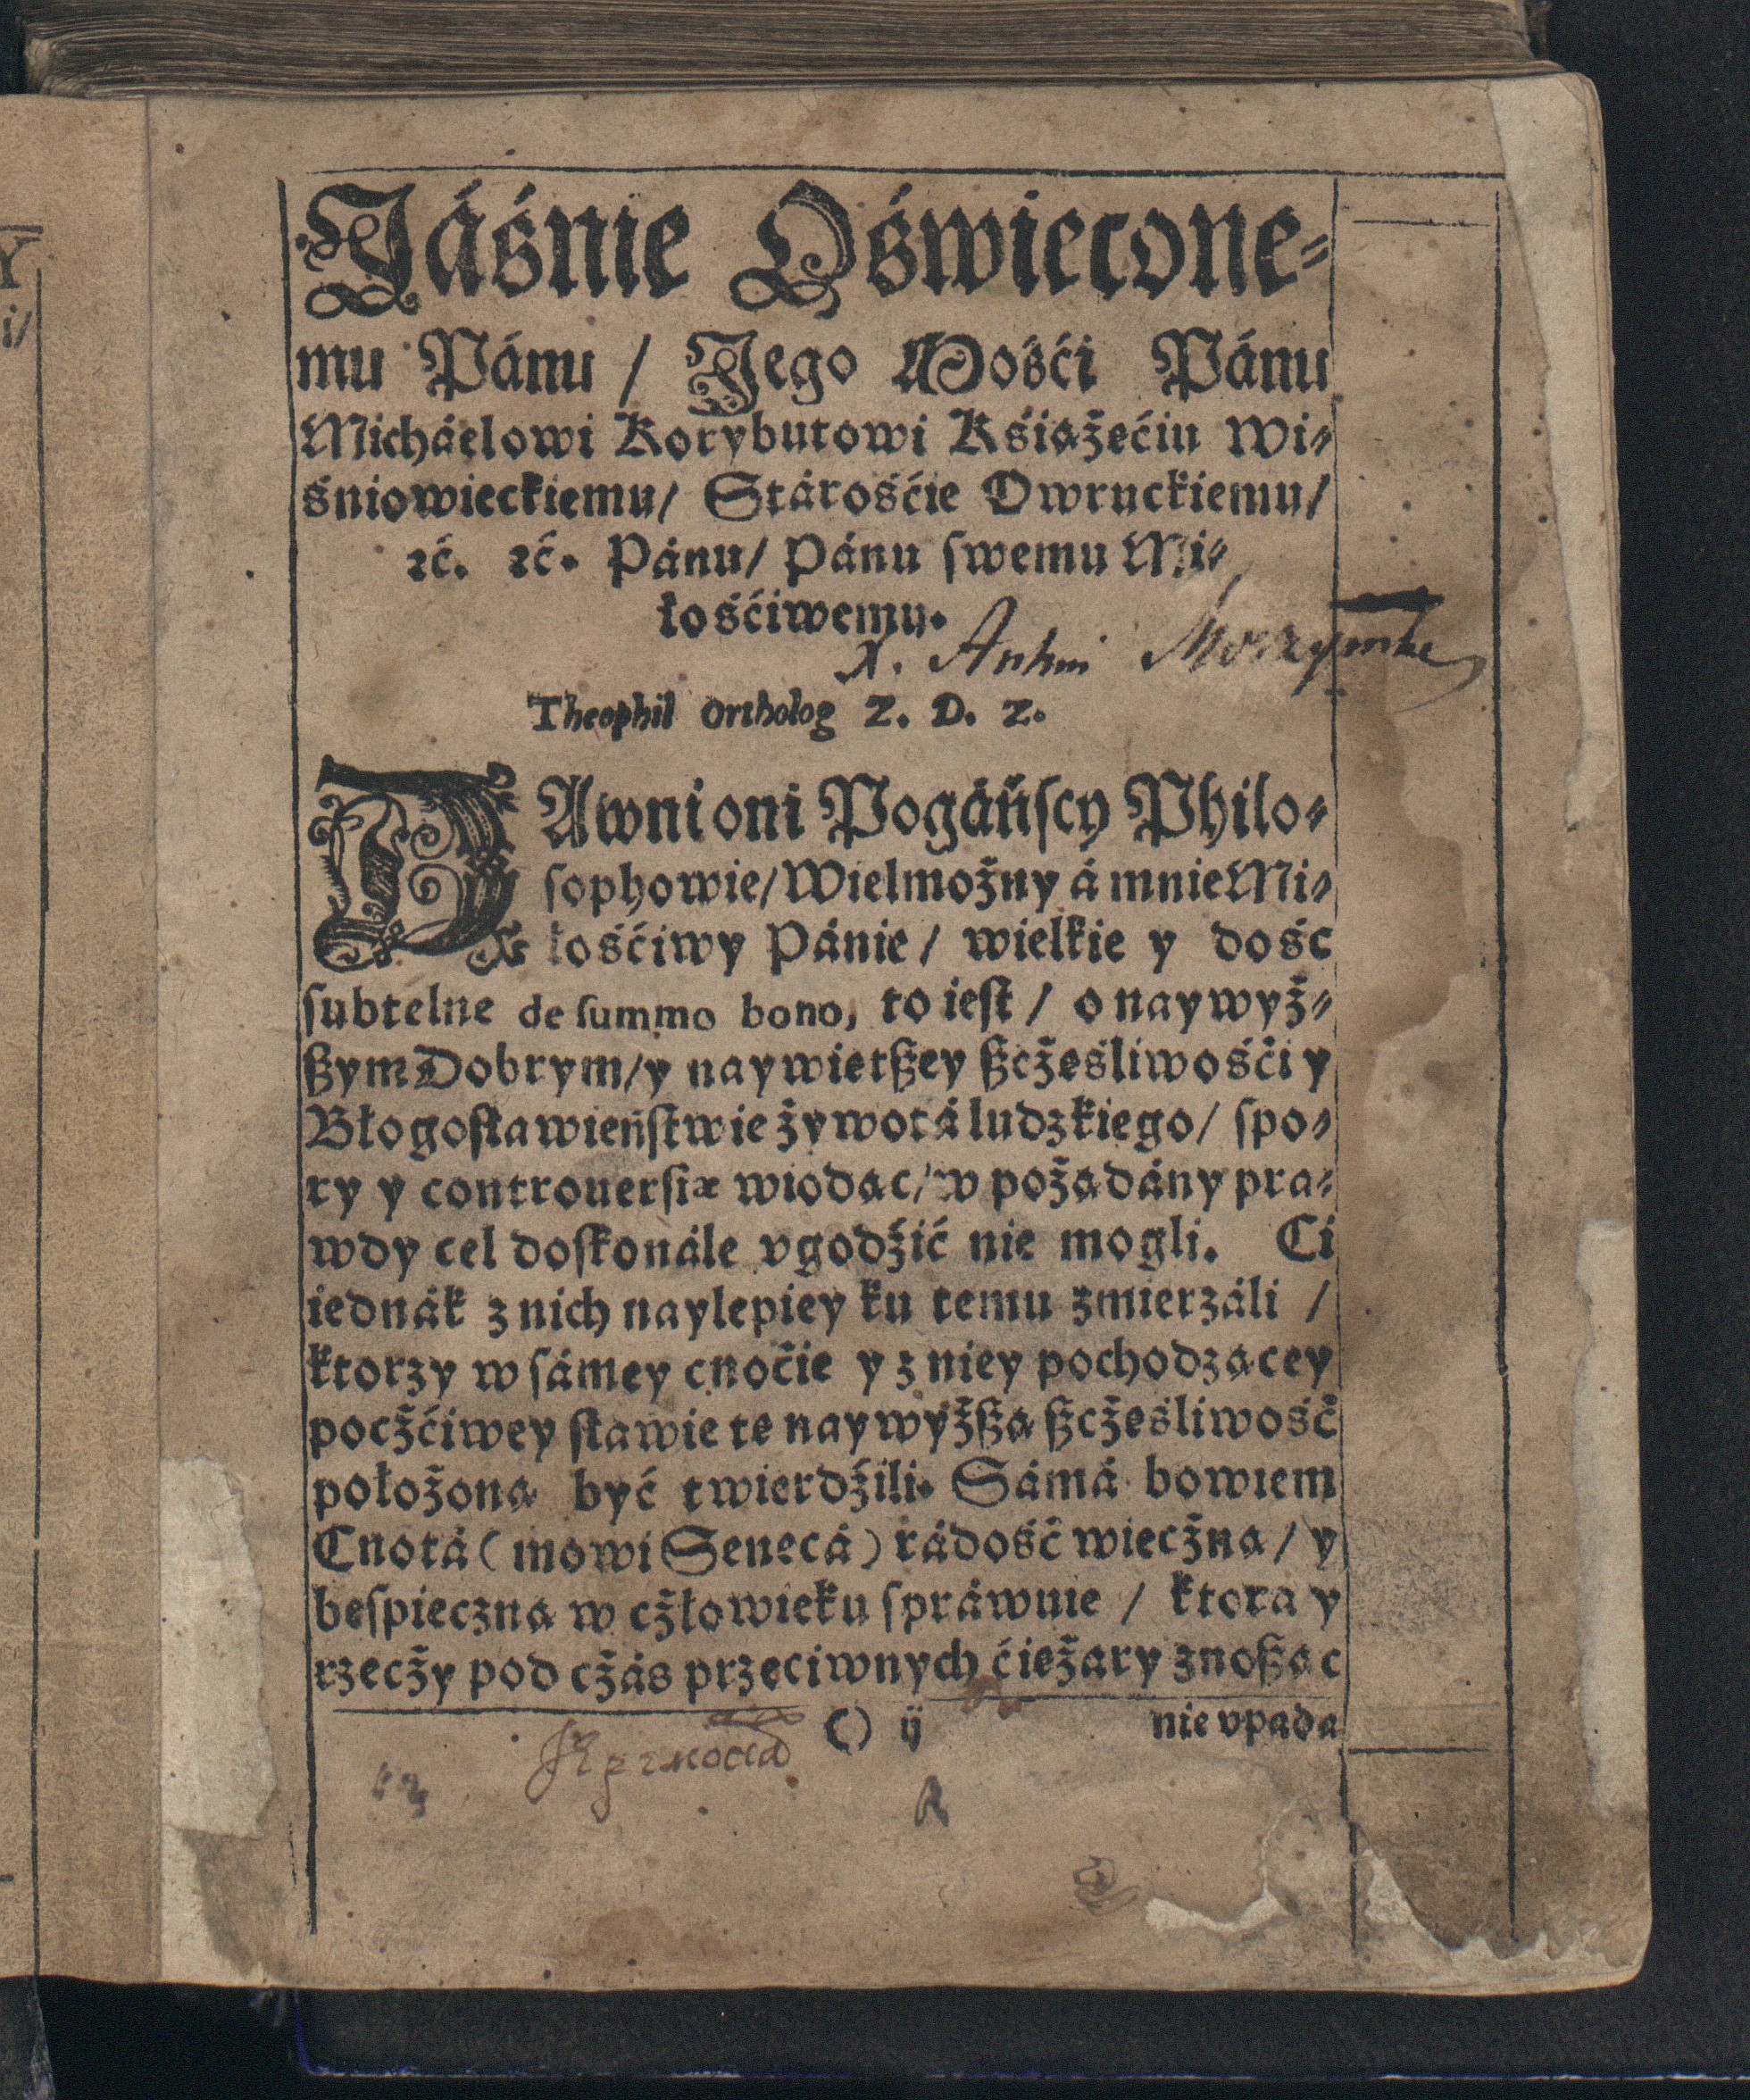 Jáśnie Oświecone-
mu Pánu / Jego Mośći Pánu
Micháelowi Korybutowi Kśiążęćiu Wi-
śniowieckiemu/ Stárośćie Owruckiemu/
ꝛć. ꝛć. Pánu/ Pánu swemu Mi-
łośćiwemu.
X. Antoni
Theophil Ortholog Z. D. Z.
DAwni oni Pogáńscy Philo-
sophowie/ Wielmożny á mnie Mi-
łośćiwy Pánie / wielkie y dośc
subtelne de summo bono, to iest / o naywyż-
ßym Dobrym/ y naywietßey ßcżęśliwośći y
Błogosławieństwie żywotá ludzkiego/ spo-
ry y controuersiæ wiodąc/ w pożądány pra-
wdy cel doskonále vgodźić nie mogli. Ci
iednák z nich naylepiey ku temu zmierzáli /
ktorzy w sámey cnoćie y z niey pochodzącey
pocżćiwey sławie te naywyżßą ßcżęśliwość
położoną być twierdźili. Sámá bowiem
Cnotá ( mowi Senecá ) rádość wiecżną / y
bespieczną w cżłowieku spráwuie / ktora y
rzecży pod cżás przeciwnych ćieżary znoßąc
() ij nie vpada